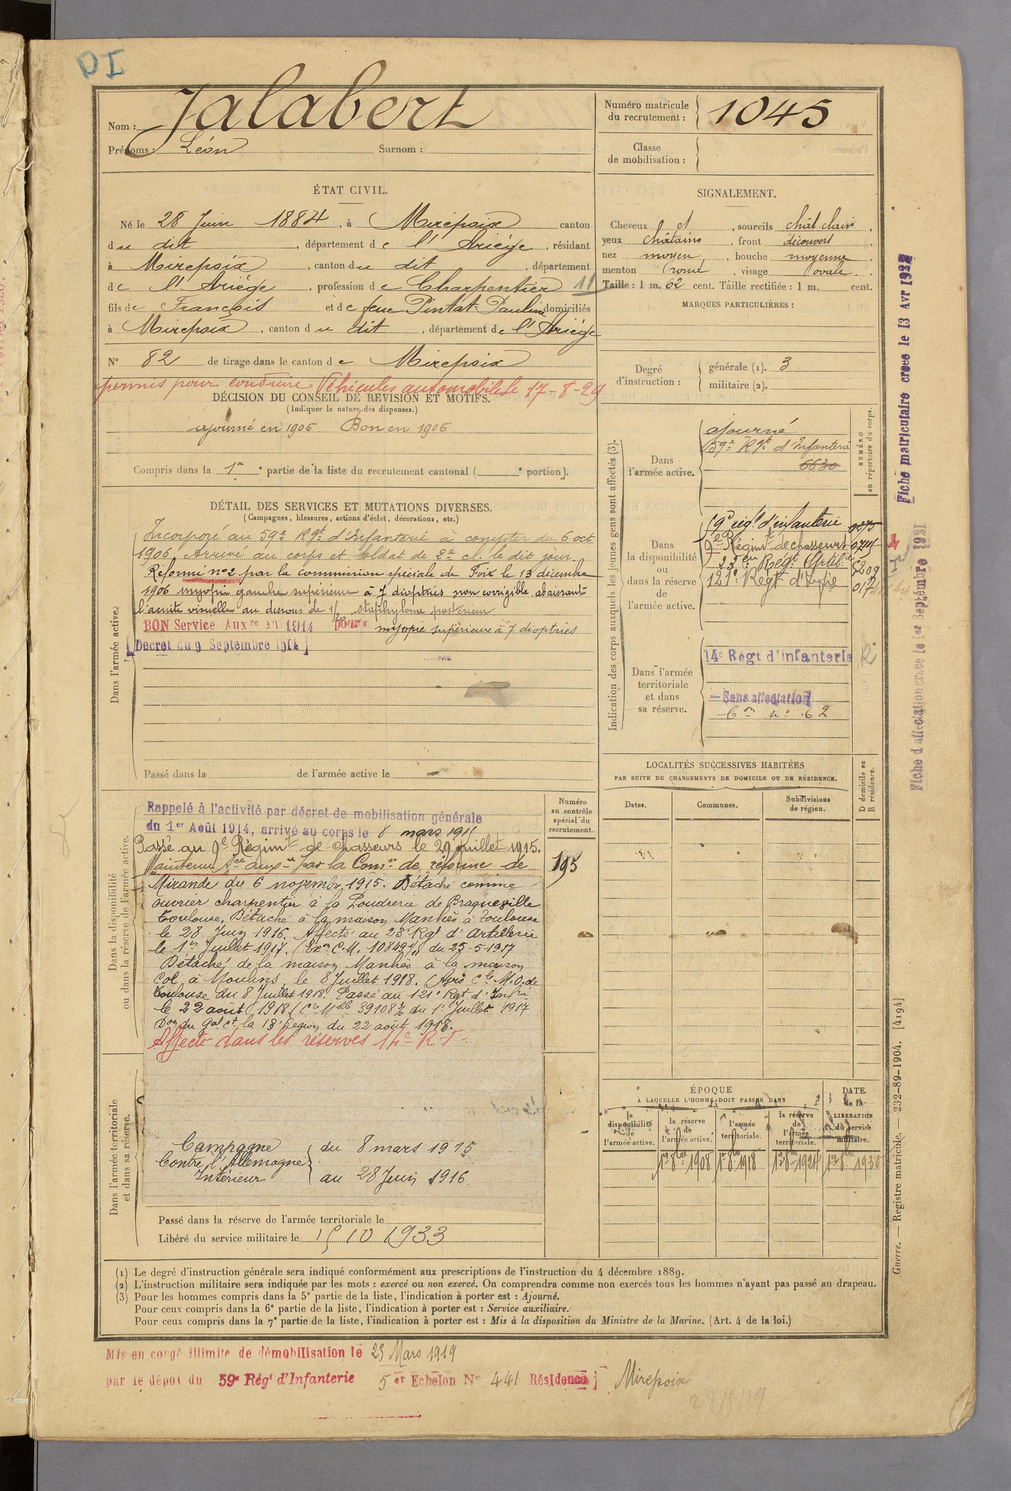 DI
Nom : Jalabert
Prénoms : Léon Surnom :
Numéro matricule du recrutement : 1045
Classe de mobilisation :
ÉTAT CIVIL.
Né le 28 Juin 1884, à Mirepoix canton
du dit, département de l'Ariège, résidant
à Mirepoix, canton du dit, département
de l'Ariège, profession de Charpentier 11
fils de François et de feue Pintat Pauline domiciliés
à Mirepoix, canton du dit, département de l'Ariège
N° 82 de tirage dans le canton de Mirepoix
permis pour conduire Véhicules automobiles le 17-8-29
SIGNALEMENT.
Cheveux et, sourcils chât. clairs,
yeux châtains, front découvert
nez moyen, bouche moyenne
menton rond, visage ovale.
Taille : 1 m. 62 cent. Taille rectifiée : 1 m. cent.
MARQUES PARTICULIÈRES :
Degré d'instruction :
générale (1). 3
militaire (2).
DÉCISION DU CONSEIL DE RÉVISION ET MOTIFS.
(Indiquer la nature des dispenses.)
ajourné en 1905 Bon en 1906
Compris dans la 1re partie de la liste du recrutement cantonal ( e portion).
DÉTAIL DES SERVICES ET MUTATIONS DIVERSES.
(Campagnes, blessures, actions d'éclat, décorations, etc.)
Dans l'armée active.
Incorporé au 59e Rgt d'Infanterie à compter du 6 oct
1906. Arrivé au corps et soldat de 2e cl. le dit jour.
Réformé n°2 par la commission spéciale de Foix le 13 décembre
1906 myopie gauche supérieure à 7 dioptries non corrigible abaissant
l'acuité visuelle au dessous de staphylome postérieur
BON Service Auxre en 1914 myopie supérieure à 7 dioptries
[Décret du 9 Septembre 1914]
Passé dans la de l'armée active le
Indication des corps auxquels les jeunes gens sont affectés (3).
NUMÉRO au répertoire du corps.
Dans l'armée active.
ajourné
59e Rgt d'Infanterie
6630
Dans la disponibilité ou dans la réserve de l'armée active.
9e Régiment de chasseurs
23e Regt Artil
121e Regt d'Infrie
Dans l'armée territoriale et dans sa réserve.
14e Regt d'Infanterie
Sans affectation
Fiche matriculaire créée le 13 Avr 1932
Fiche d'affectation créée le 1er Septembre 1931
LOCALITÉS SUCCESSIVES HABITÉES
PAR SUITE DE CHANGEMENTS DE DOMICILE OU DE RÉSIDENCE.
Dates. Communes. Subdivisions de région.
D domicile ou R résidence.
Dans la disponibilité ou dans la réserve de l'armée active.
Numéro au contrôle spécial du recrutement.
195
Rappelé à l'activité par décret de mobilisation générale
du 1er Août 1914, arrivé au corps le 8 mars 1915
Passé au 9e Régiment de chasseurs le 29 juillet 1915.
Maintenu Sce auxre par la Comon de réforme de
Mirande du 6 novembre 1915. Détaché comme
ouvrier charpentier à la Poudrerie de Braqueville
Toulouse, Détaché à la maison Manhès à Toulouse
le 28 Juin 1916. Affecté au 23e Rgt d'Artillerie
le 1er Juillet 1917. du 25-5-1917
Détaché de la maison Manhès à la maison
Col, à Moulins, le 8 Juillet 1918. (Avis C.le M.O. de
Toulouse du 8 Juillet 1918. Passé au 121e Rgt d'Infrie
le 22 août 1918 (Cre Mlle 39108 du 1er Juillet 1917
Don du Gal Ct la 13e Région du 22 août 1918.
Affecté dans les réserves 14e R.I.
Dans l'armée territoriale et dans sa réserve.
Campagne
Contre l'Allemagne
Intérieur
du 8 mars 1915
au 28 Juin 1916
Passé dans la réserve de l'armée territoriale le
Libéré du service militaire le 15 10 1933
ÉPOQUE
À LAQUELLE L'HOMME DOIT PASSER DANS
la disponibilité de l'armée active.
la réserve de l'armée active.
l'armée territoriale.
la réserve de l'armée territoriale.
DATE de la LIBÉRATION du service militaire.
1er 8bre 1908 1er 8bre 1918
(1) Le degré d'instruction générale sera indiqué conformément aux prescriptions de l'instruction du 4 décembre 1889.
(2) L'instruction militaire sera indiquée par les mots : exercé ou non exercé. On comprendra comme non exercés tous les hommes n'ayant pas passé au drapeau.
(3) Pour les hommes compris dans la 5e partie de la liste, l'indication à porter est : Ajourné.
Pour ceux compris dans la 6e partie de la liste, l'indication à porter est : Service auxiliaire.
Pour ceux compris dans la 7e partie de la liste, l'indication à porter est : Mis à la disposition du Ministre de la Marine. (Art. 4 de la loi.)
Guerre. — Registre matricule. — 232-89-1904. [4194]
Mis en congé illimité de démobilisation le 23 Mars 1919
par le dépôt du 59e Régt d'Infanterie 5er Echelon N° 441 Résidence] Mirepoix
28/8/19